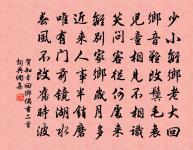 少小離鄉老大回
鄉音難改鬢毛衰
兒童相見不相識
笑問客從何處來
離別家鄉歲月多
近來人事半銷磨
唯有門前鏡湖水
春風不改舊時波
賀知章回鄉偶書二首
詞典網